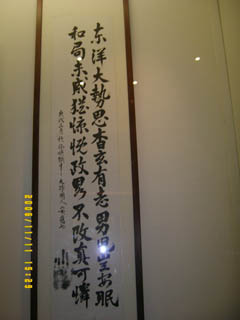 東洋大勢思杳玄有志男児豈安眠
和局未成猶慷慨政略不改真可憐
庚戌三月 於旅順獄中 大韓國人 安重根書